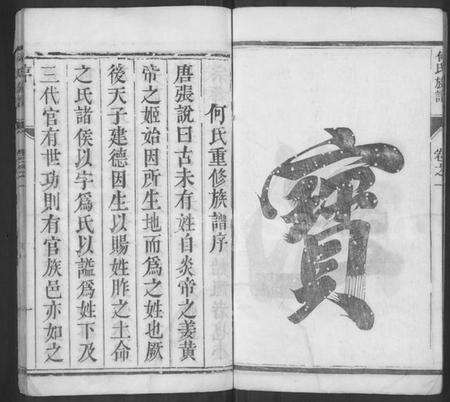 何氏族譜
卷之一
寶
何氏重修族譜序
唐張說曰古未有姓自炎帝之姜黃
帝之姬始因所生地而為之姓也厥
後天子建德因生以賜姓胙之土命
之氏諸侯以字爲氏以謚爲姓下及
三代官有世功則有官族邑亦如之